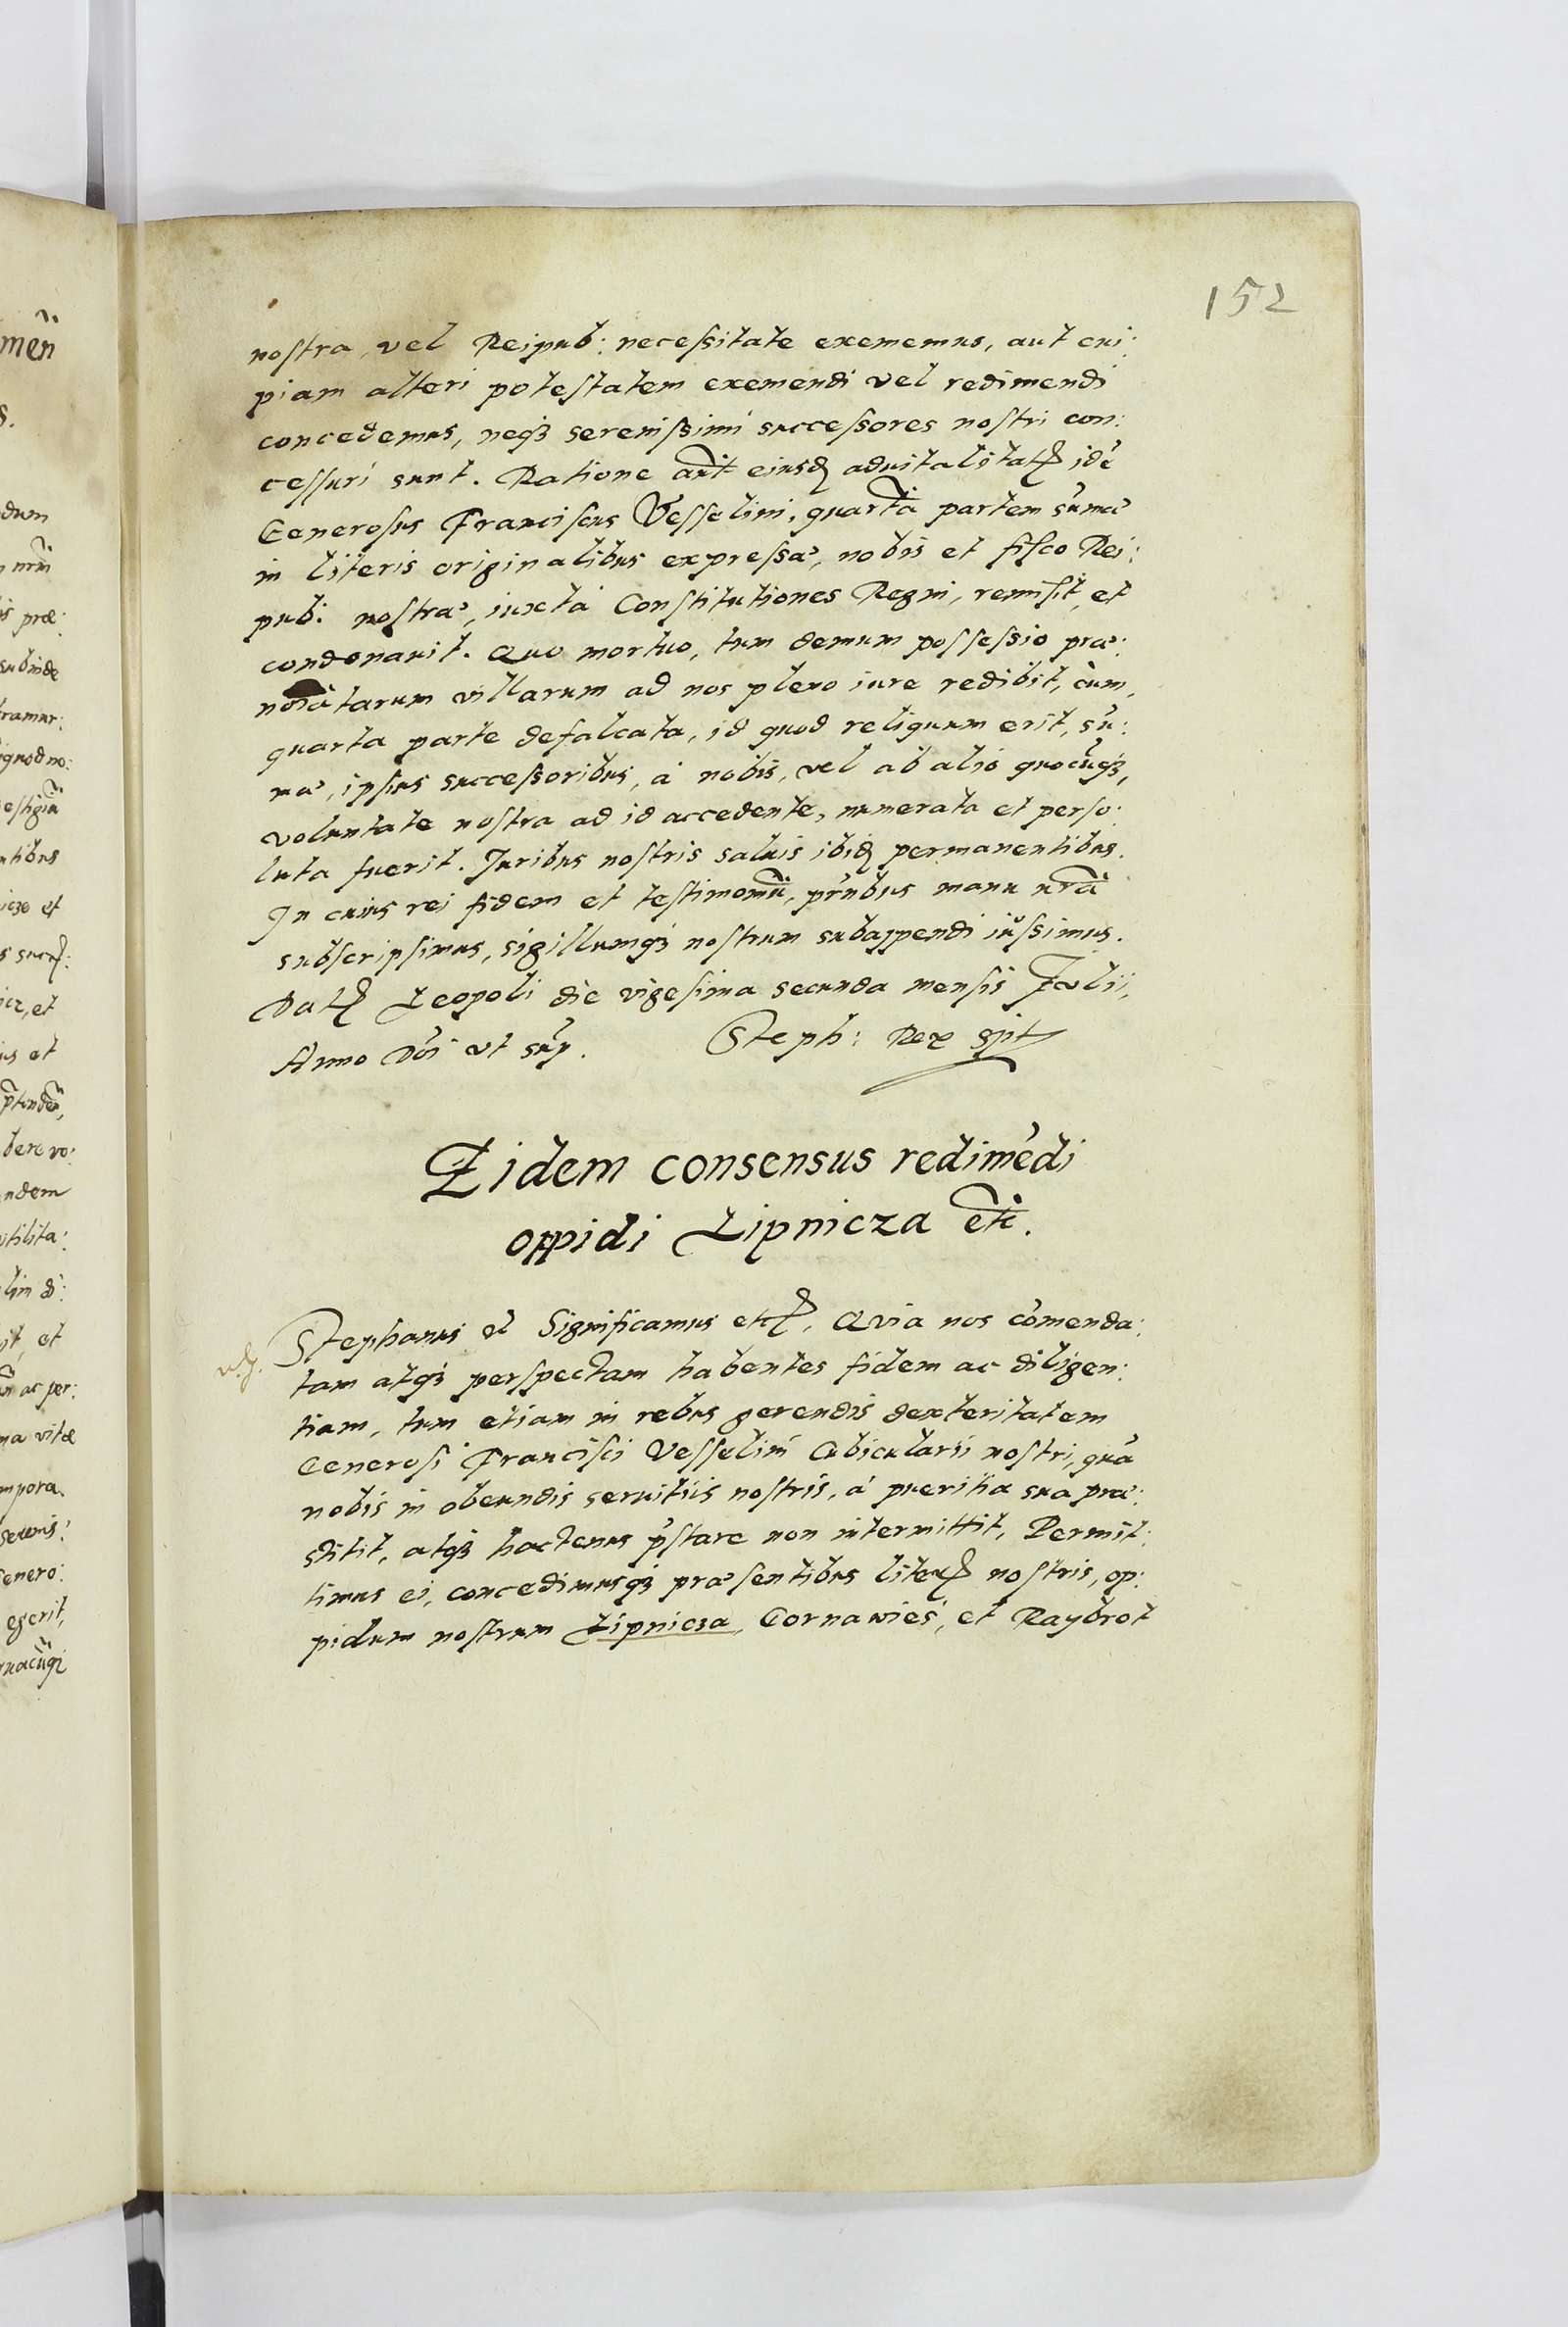 152
nostra, vel Reipub: necessitate exememus, aut cui:
piam alteri potestatem exemendi vel redimendi
concedemus, neqꝫ serenissimi successores nostri con:
cessuri sunt. Ratione aūt eiusd advitalitatis idē
Generosus Franciscus Vesselini, quartā partem sum̄æ
in literis originalibus expressæ, nobis et fisco Rei:
pub: nostræ, iuxta Constitutiones Regni, remisit, et
condonavit. Quo mortuo, tum demum possessio præ:
noiatarum villarum ad nos pleno iure redibit, cum,
quarta parte defalcata, id quod reliquum erit, sum̄:
mæ, ipsius successoribus, à nobis, vel ab alio quocūqꝫ,
voluntate nostra ad id accedente, numerata et perso:
luta fuerit. Juribus nostris salvis ibid permanentibus.
In cuius rei fidem et testimoniū, pn̄tibus manu nrā
subscripsimus, sigillumqꝫ nostrum subappendi iussimus.
Dat Leopoli die vigesima secunda mensis Julii,
Anno Dn̄i vt sup. Steph: Rex spt
Eidem consensus redimēdi
oppidi Lipnicza etc.
Stephanus et Significamus etc, Qvia nos com̄enda:
tam atqꝫ perspectam habentes fidem ac diligen:
tiam, tum etiam in rebus gerendis dexteritatem
Generosi Francisci Vesselini Cubicularii nostri, quā
nobis in obeundis servitiis nostris, à pueritia sua præ:
stitit, atqꝫ hactenus p̄stare non intermittit, Permit:
timus ei, concedimusqꝫ præsentibus literis nostris, op:
pidum nostrum Lipnicza, Gornawies, et Raybrot